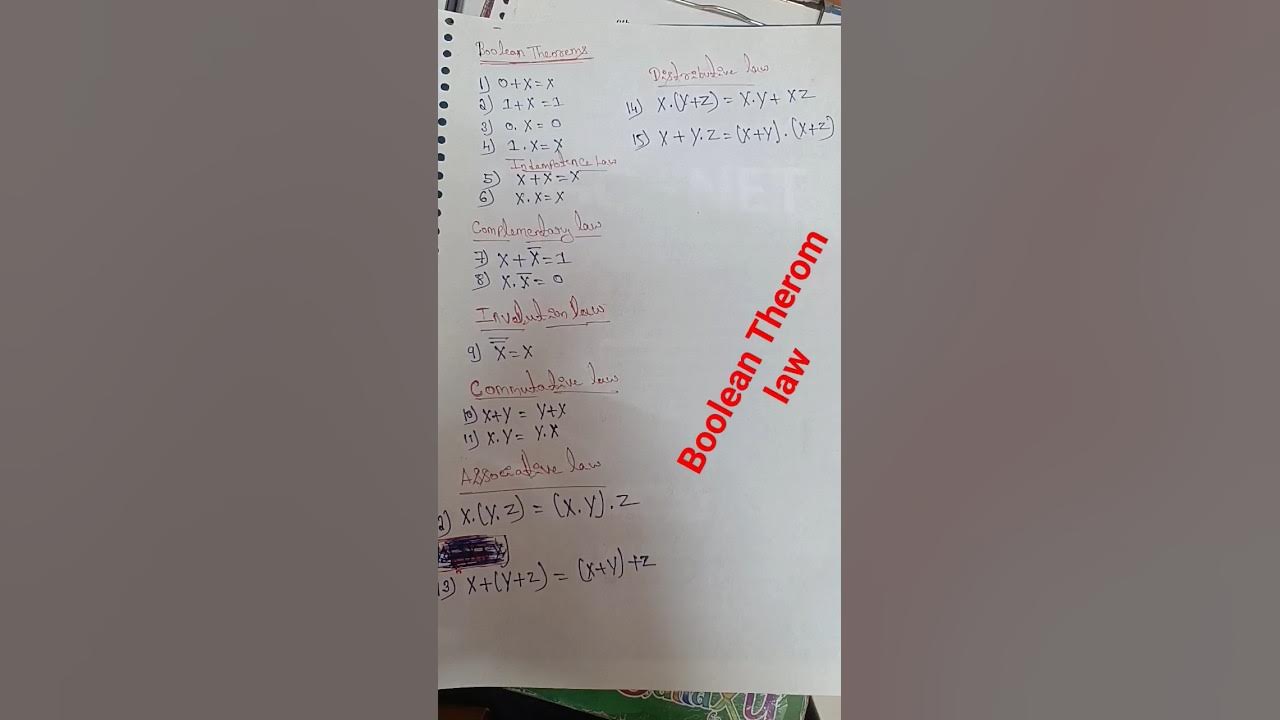 Boolean Theorems
1) 0+X=X
2) 1+X=1
3) 0.X=0
4) 1.X=X
Indempotence Law
5) X+X=X
6) X.X=X
Complementary law
7) X+X̅=1
8) X.X̅=0
Involution law
9) X̿=X
Commutative law
10) X+Y = Y+X
11) X.Y= Y.X
Associative law
2) X.(Y.Z) = (X.Y).Z
13) X+(Y+Z) = (X+Y)+Z
Distributive law
14) X.(Y+Z) = X.Y+ XZ
15) X+Y.Z=(X+Y).(X+Z)
Boolean Therom
law